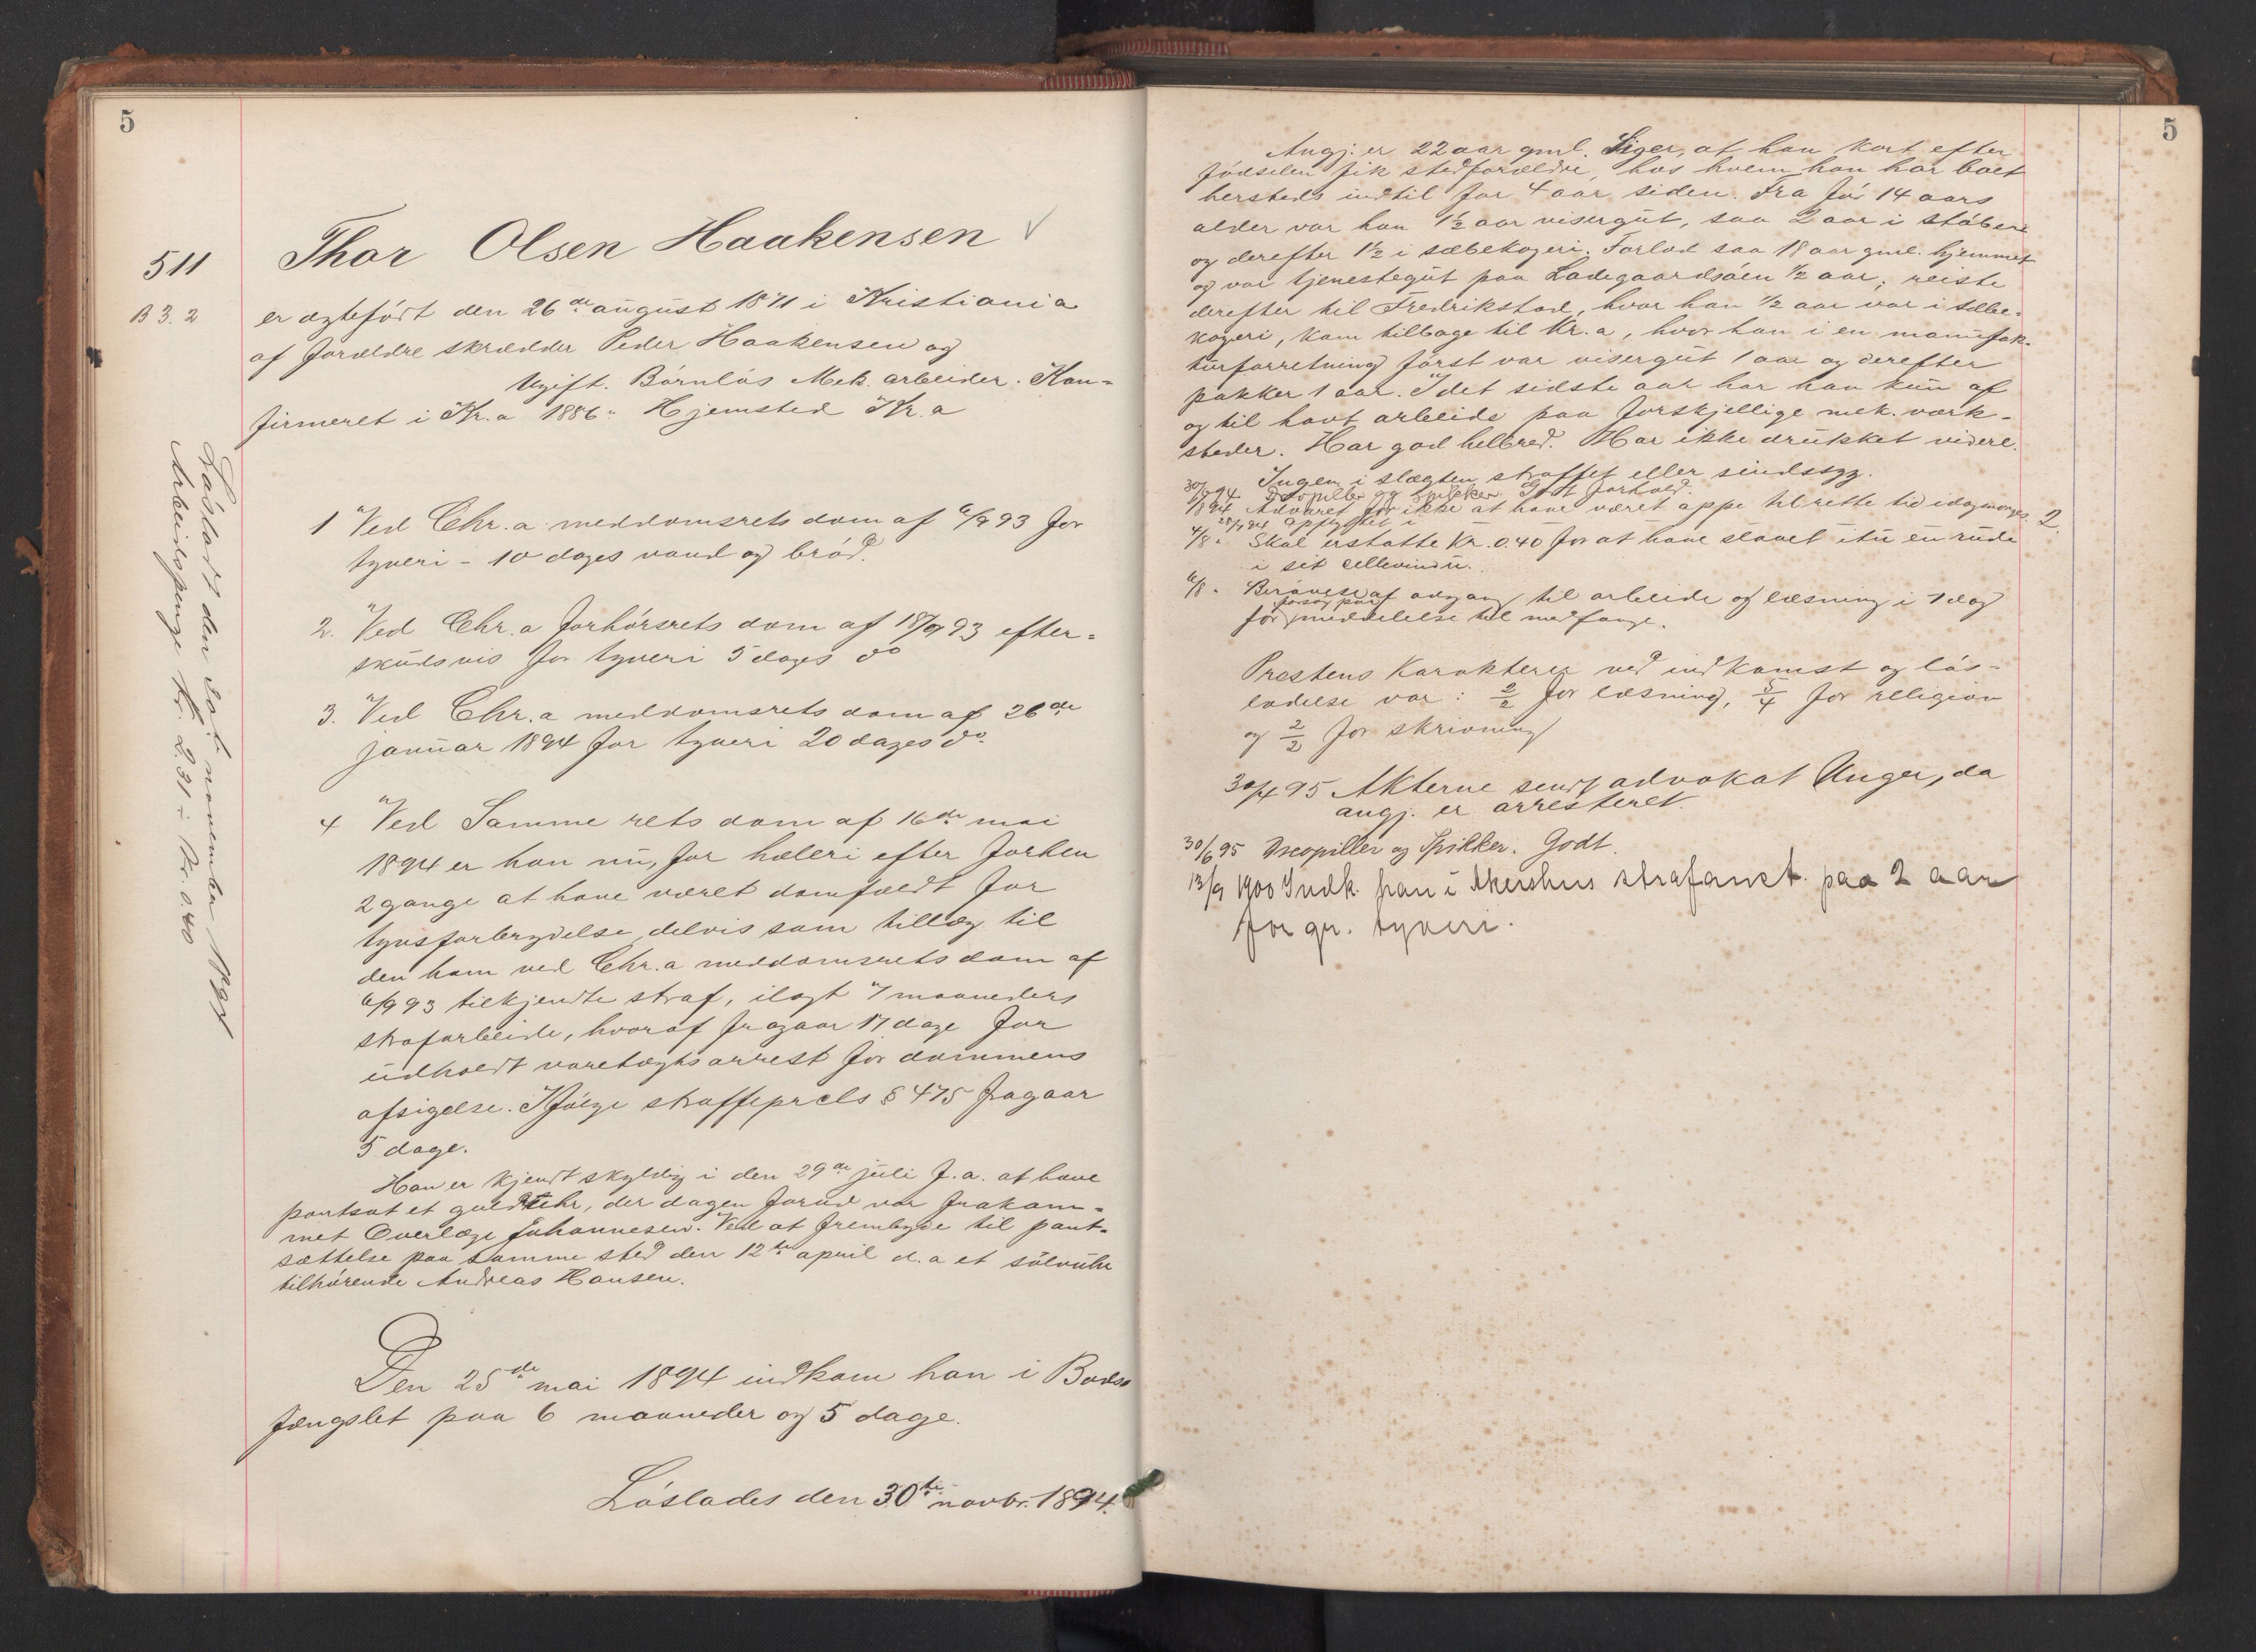 5
511
B 3. 2
Thor Olsen Haakensen ✓
er ægtefødt den 26de august 1871 i Kristiania
af forældre skrædder Peder Haakensen og
Ugift. Børnløs Mek. arbeider. Kon=
firmeret i Kr.a 1886. Hjemsted Kr.a
1 Ved Chr.a meddomsrets dom af 6/9 93 for
tyveri - 10 dages vand og brød.
2. Ved Chr.a forhørsrets dom af 18/9 93 efter=
skudsvis for tyveri 5 dages do
3. Ved Chr.a meddomsrets dom af 26de
januar 1894 for tyveri 20 dages do
4 Ved Samme rets dom af 16de mai
1894 er han nu, for hæleri efter forhen
2 gange at have været domfældt for
tyvsforbrydelse, delvis som tillæg til
den ham ved Chr.a meddomsrets dom af
6/9 93 tilkjendte straf, ilagt 7 maaneders
strafarbeide, hvoraf fragaar 17 dage for
udholdt varetægtsarrest før dommens
afsigelse. Ifølge straffeprcls § 475 fragaar
5 dage.
Han er kjendt skyldig i den 29de juli f.a. at have
pantsat et gulduhr, der dagen forud var frakom=
met Overlæge Johannesen. Ved at frembyde til pant-
sættelse paa samme sted den 12te april d.a et sølvuhr
tilhørende Andreas Hansen.
Den 25de mai 1894 indkom han i Bods
fængslet paa 6 maaneder og 5 dage.
Løslades den 30te novbr. 1894.
Løsladt den 30te november 1894
Arbeidspenge Kr. 2.31 ÷ Kr. 0.40
5
Angj. er 22 aar gml. Siger, at han kort efter
fødselen fik stedforældre, hos hvem han har boet
hersteds indtil for 4 aar siden. Fra før 14 aars
alder var han 1½ aar visergut, saa 2 aar i støberi
og derefter 1½ i sæbekogeri. Forlod saa 18 aar gml. hjemmet
og var tjenestegut paa Ladegaardsøen ½ aar, reiste
derefter til Fredrikstad, hvor han ½ aar var i sæbe-
kogeri, kom tilbage til Kr.a, hvor han i en manufak-
turforretning først var visergut 1 aar og derefter
pakker 1 aar. I det sidste aar har han kun af
og til havt arbeide paa forskjellige mek. værk-
steder. Har god helbred. Har ikke drukket videre.
Ingen i slægten straffet eller sindssyg.
30/6 94 Dropiller og Spikker. Godt forhold.
/8 94 Advaret for ikke at have været oppe til rette tid idagmorges 2.
4/8 " Skal erstatte Kr. 0.40 for at have slaaet itu en rude
i sit cellevindu.
6/8 " Berøvelse af adgang til arbeide og læsning i 1 dag
for forsøg paa meddelelse til medfange.
Prestens Karakterer ved indkomst og løs-
ladelse var: 2/2 for læsning, 5/4 for religion
og 2/2 for skrivning
30/4 95 Akterne sendt advokat Unger, da
angj. er arresteret.
30/6 95 Dropiller og Spikker. Godt.
13/9 1900 Indk. han i Akershus strafanst. paa 2 aar
for gr. tyveri.